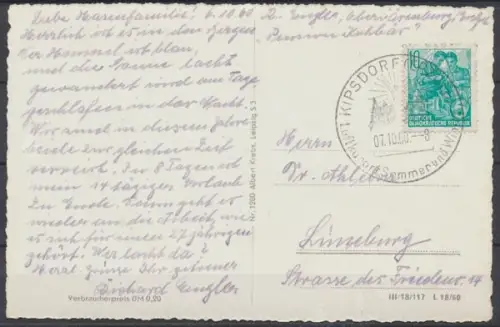 Liebe Hasenfamilie! 6.10.60
Herrlich ist es in den Bergen
der Himmel ist blau,
und die Sonne lacht
gewandert wird am Tage
geschlafen in der Nacht.
Wir sind in diesem Jahre
beide zur gleichen Zeit
verreist. In 8 Tagen ist
mein 14 tägiger Urlaub
zu Ende. Dann geht es
wieder an die Arbeit, wie
es sich für einen 27jährigen
gehört. Wer lacht da?
Herzl. Grüsse Ihr getreuer
Richard Engler
Verbraucherpreis DM 0,20
Nr. 1280 Albert Krebs, Leipzig S 3
R. Engler, Oberbärenburg, Erzgeb.
Pension
10
DEUTSCHE DEMOKRATISCHE REPUBLIK
KIPSDORF
07.10.60 -8
Luftkurort Sommer und Winter
Herrn
Dr.
Lüneburg
Strasse des Friedens 14
III-18/117 L 18/60